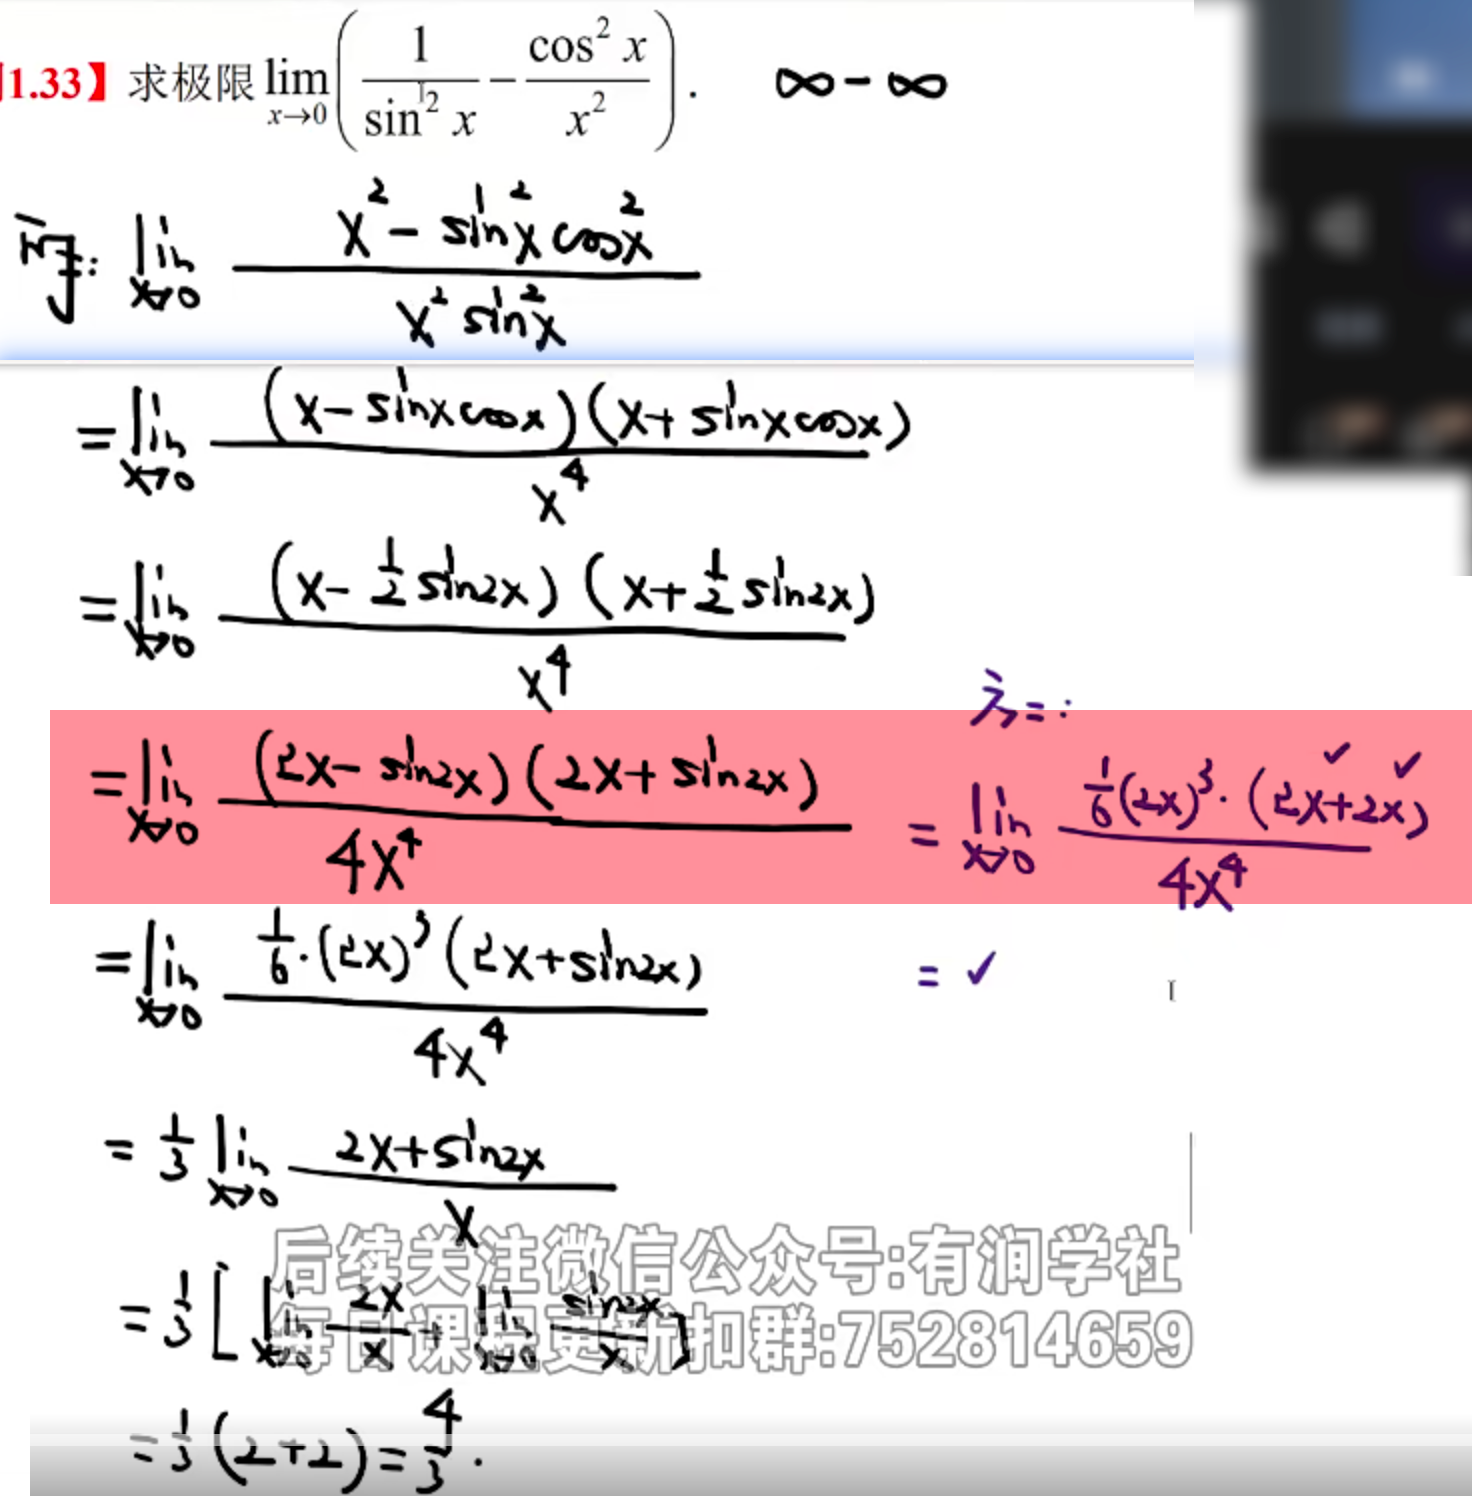 1.33】求极限 lim x→0 ( 1/sin² x − cos² x/x² ). ∞-∞
原: lim x→0 (x² - sin²x cos²x)/(x² sin²x)
= lim x→0 (x - sinx cosx)(x + sinx cosx)/x⁴
= lim x→0 (x - 1/2 sin2x)(x + 1/2 sin2x)/x⁴
方二:
= lim x→0 (2x - sin2x)(2x + sin2x)/4x⁴ = lim x→0 1/6(2x)³·(2x+2x)/4x⁴
= lim x→0 1/6·(2x)³(2x+sin2x)/4x⁴ = ✓
= 1/3 lim x→0 (2x+sin2x)/x
后续关注微信公众号:有润学社
= 1/3 [ lim x→0 2x/x + lim x→0 sin2x/x ]
每日课程更新扣群:752814659
= 1/3 (2+2) = 4/3.